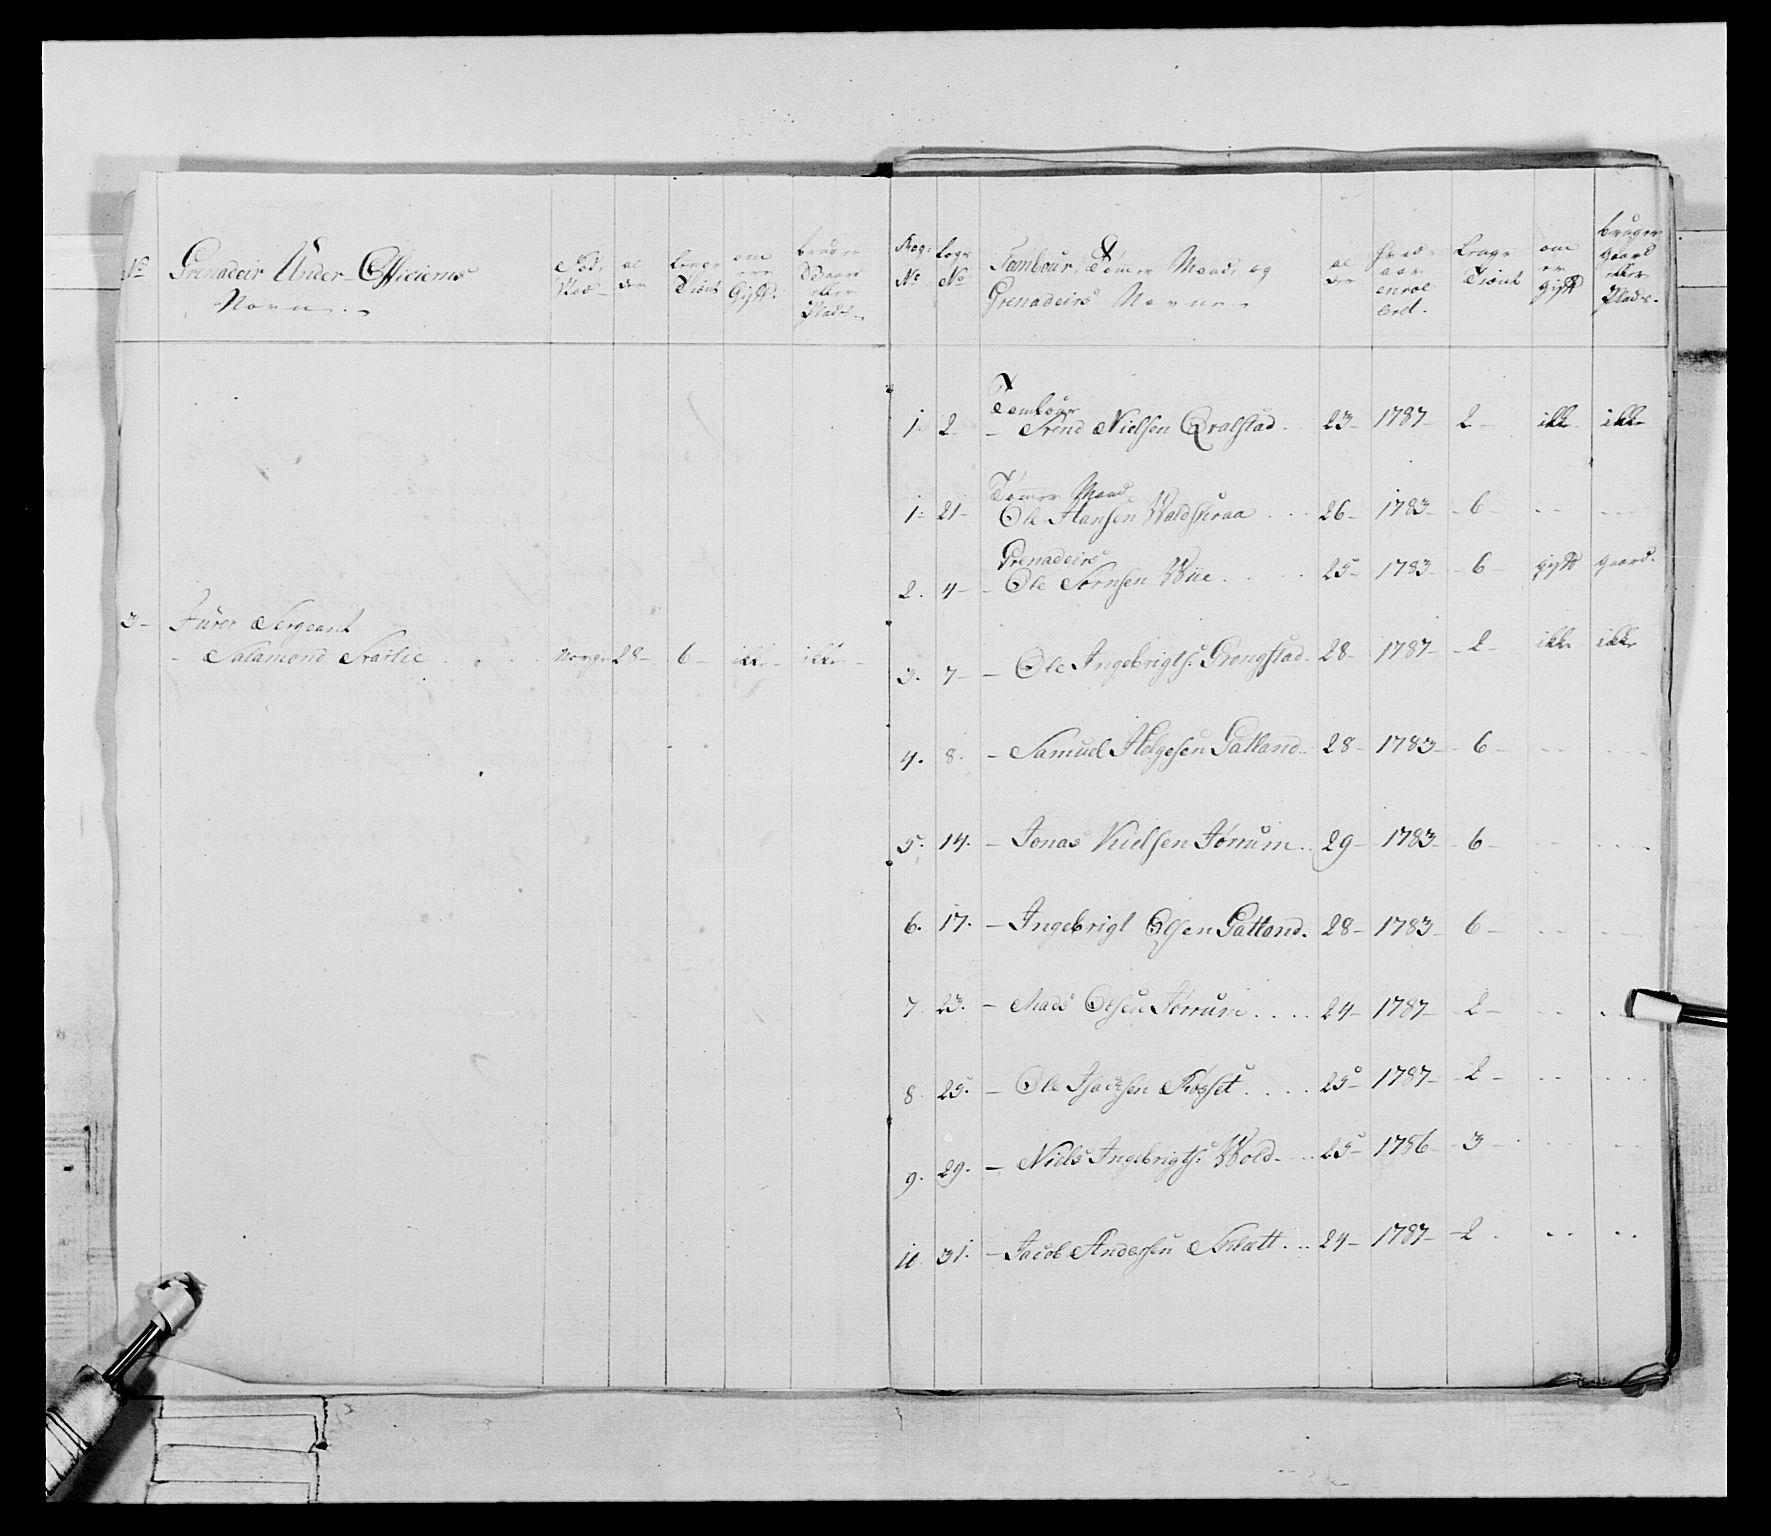 No
Grenadeir Under-Officiers
Navn
Føde
Sted
al
der
længe
Tient
om
ere
Gift.
bruger
Gaard
eller
Plads.
3- Furer Sergeant
- Salamond 
Norge 28- 6- ikke- ikke-
No
No
Tambour, Tømer Mand, og
Grenadeirs Navne
al
der
hvad
aar
enrol
lert.
længe
Tient
om
er
gift
bruger
gaard
eller
Plads.
Tambour
1 2 - Svend Nielsen Qvalstad 23- 1787- 2- ikke ikke
Tømer Mand
1- 21- Ole Hansen 26- 1783- 6-
Grenadeirs
2. 4- - Ole Wiie 25- 1783- 6 gift gaard.
3. 7- - Ole Ingebrigts: Grongstad 28- 1787- 2- ikke ikke
4. 8. - Samuel Helgesen Galland 28- 1783- 6-
5. 14. - Jonas Nielsen Jørrum 29- 1783- 6-
6. 17. - Ingebrigt Olsen Galland. 28- 1783- 6-
7 23. - Mads Olsen Jørrum 24- 1787- 2-
8. 25. - Ole Isachsen Røsset 25 1787- 2-
9. 29. - Niels Ingebrigts: Wold 25- 1786- 3
10 31. - Jacob Andersen 24- 1787- 2